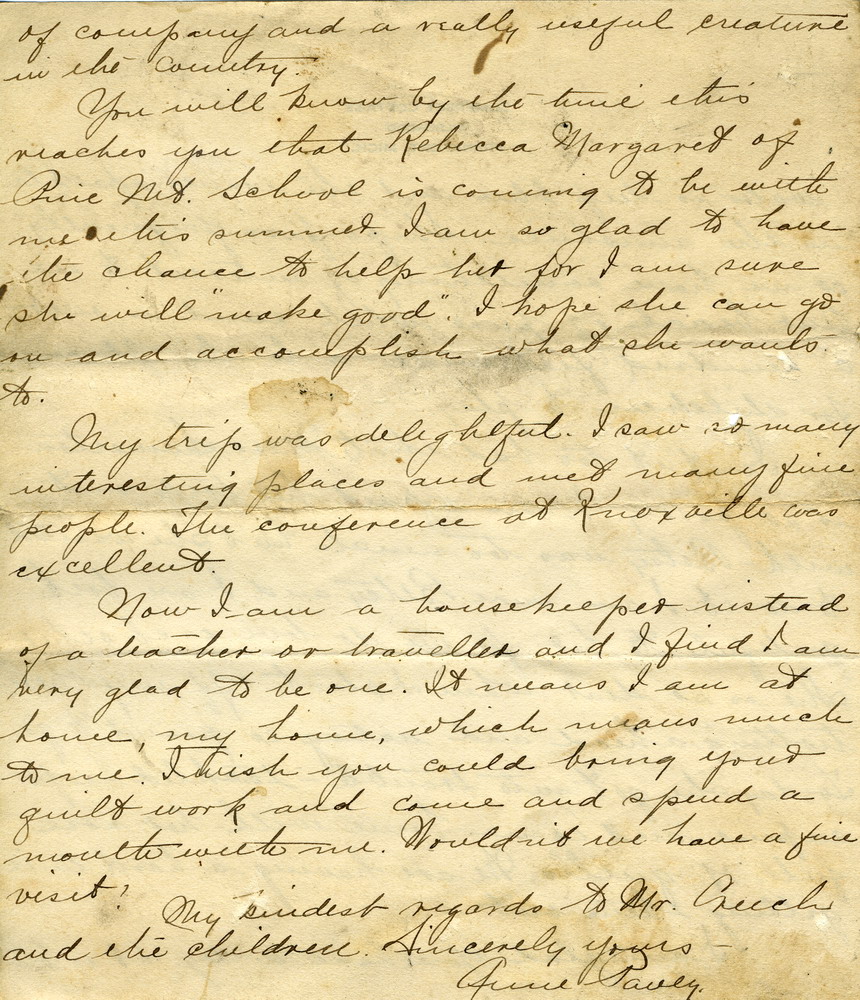 of company and a really useful creature
in the country.
You will know by the time this
reaches you that Rebecca Margaret of
Pine Mt. School is coming to be with
me this summer. I am so glad to have
the chance to help her for I am sure
she will "make good". I hope she can go
on and accomplish what she wants
to.
My trip was delightful. I saw so many
interesting places and met many fine
people. The conference at Knoxville was
excellent.
Now I am a housekeeper instead
of a teacher or traveller and I find I am
very glad to be one. It means I am at
home, my home, which means much
to me. I wish you could bring your
quilt work and come and spend a
month with me. Wouldn't we have a fine
visit?
My kindest regards to Mr. Creech
and the children. Sincerely yours -
Anne Pavey.